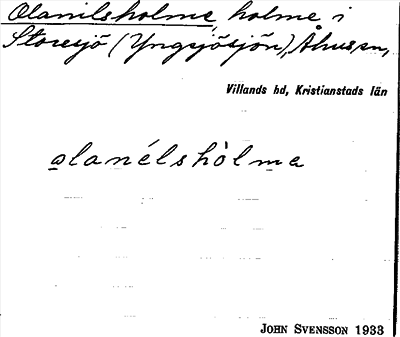 Olanilsholme, holme i
Storesjö (Yngsjösjön), Åhus sn,
Villands hd, Kristianstads län
olanélshòlmɑ
John Svensson 1933